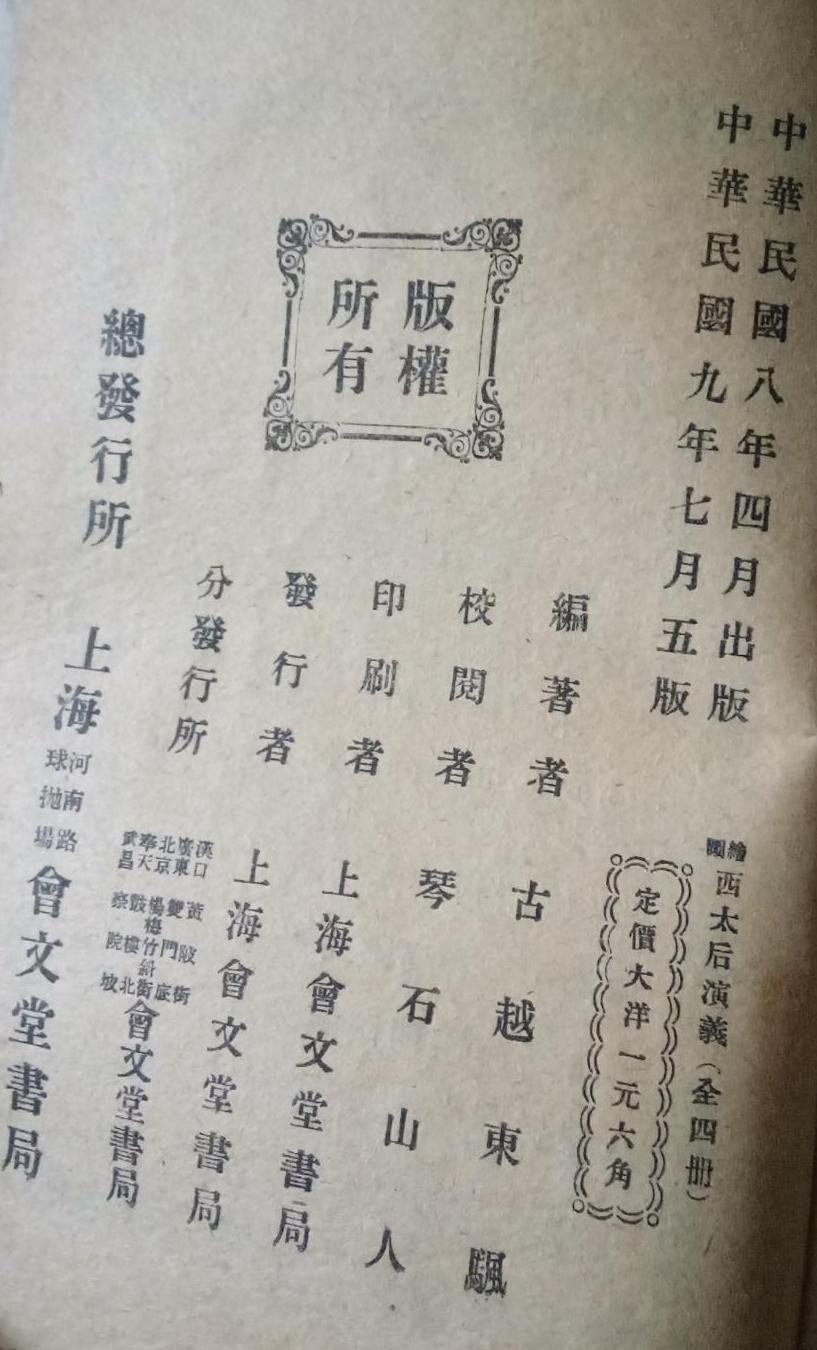 中華民國八年四月出版
中華民國九年七月五版
繪圖西太后演義（全四册）
定價大洋一元六角
版權
所有
編著者 古越東颿
校閱者 琴石山人
印刷者 上海會文堂書局
發行者 上海會文堂書局
分發行所
漢口黃陂街
廣東雙門底
北京楊梅竹斜街
奉天鼓樓北
武昌察院坡
會文堂書局
總發行所 上海
河南路
拋球場
會文堂書局